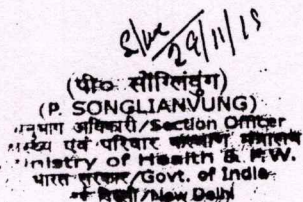 29/11/19
(पी० सोंग्लिंवुंग)
(P. SONGLIANVUNG)
अनुभाग अधिकारी/Section Officer
एवं परिवार कल्याण मंत्रालय
Ministry of Health & F.W.
भारत सरकार/Govt. of India
नई दिल्ली/New Delhi